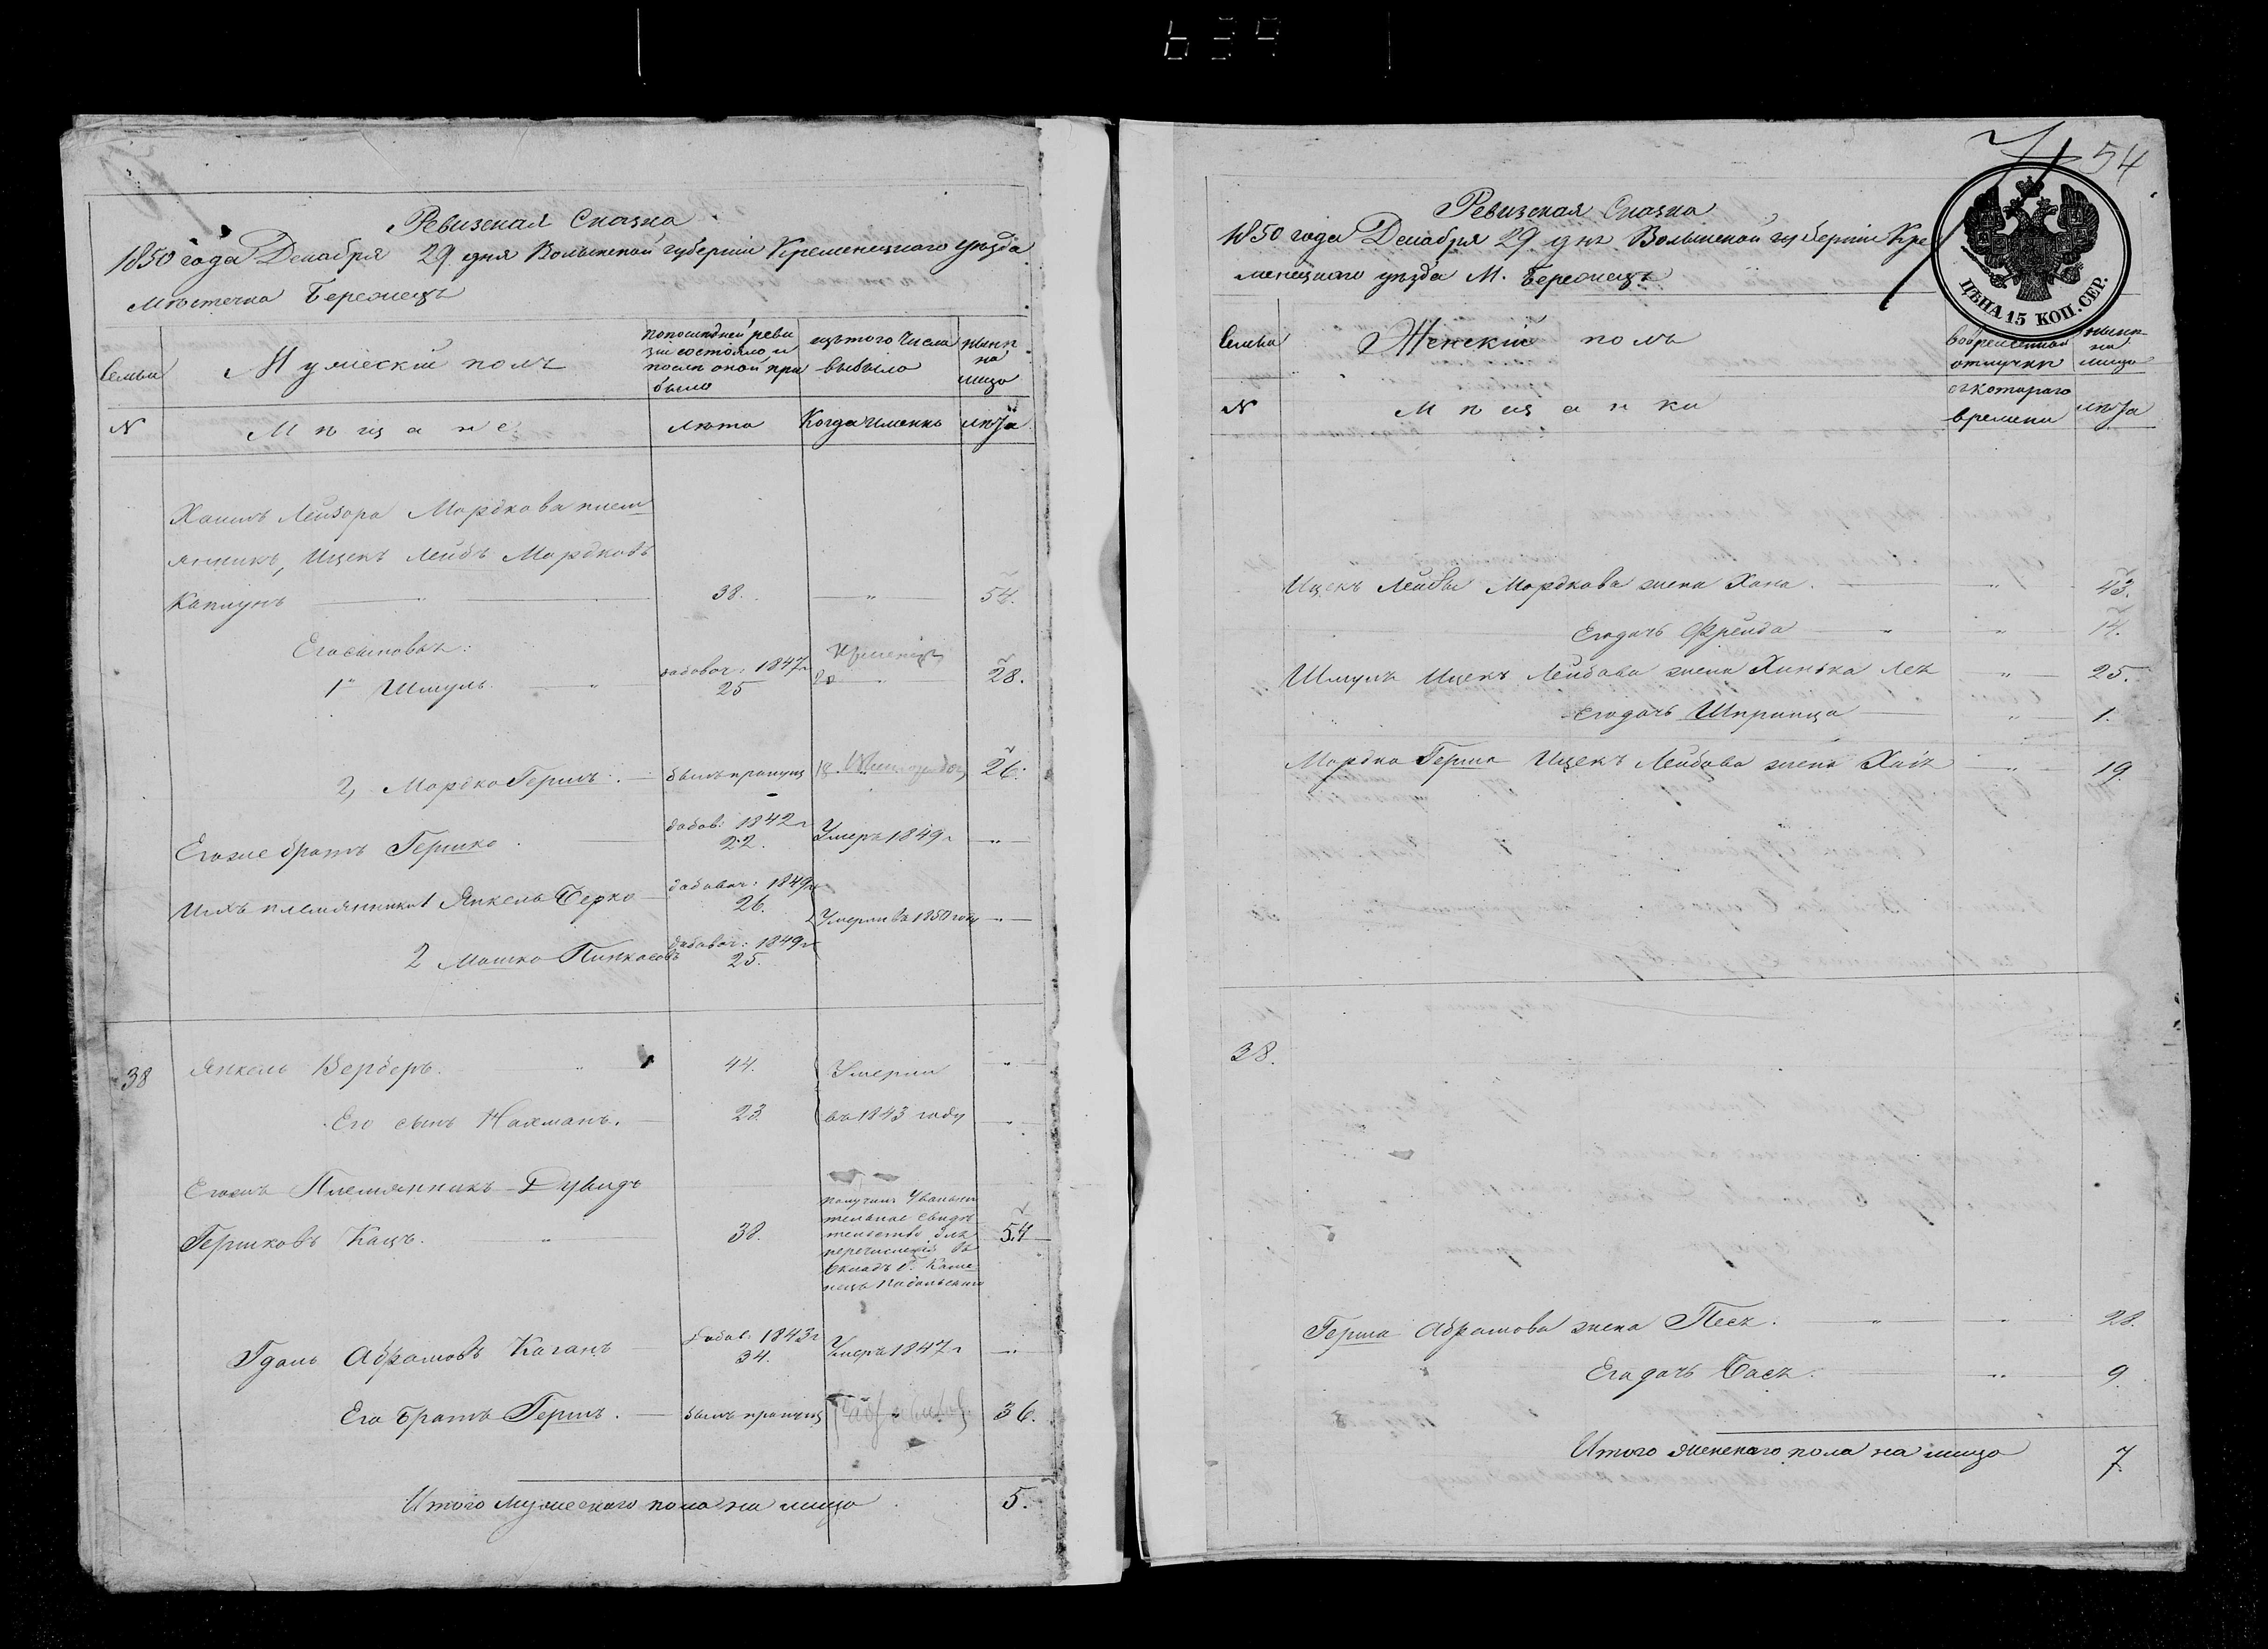 639
Ревизская Сказка
1850 года Декабря 29 дня Волынской губерніи Кременецкаго уѣзда
мѣстечка Бережецъ
Семьи
Мужескій полъ
по последней реви
зіи состояло и
послѣ оной при
было
изъ того числа
выбыло
нынѣ
на
лицо
N
Мѣщане
лѣта
Когда именно
лѣта
Хаимъ Лейзора Мордкова плем
янникъ, Ицекъ Лейбъ Мордковъ
Каплунъ 38. 54.
Его сыновья:
1й Шмуль добавоч: 1847г 25 28.
2, Мордко Гершъ былъ пропущ 26.
Его же братъ Гершко добав: 1842г 22. Умеръ 1849г
Ихъ племянники 1 Янкель Берко добавоч: 1849г 26.
Умерли въ 1850 году
2 Мошко Пинкасовъ добавоч: 1849г 25.
38 Янкель Верберъ. 44. Умерли
Его сынъ Нахманъ. 23. въ 1843 году
Егожъ Племянникъ Дувидъ
Гершковъ Кацъ. 38. 54
получилъ Увольни
тельное свидѣ
тельство для
перечисленія въ
Окладъ Г. Каме
нецъ Подольскаго
Гдаль Абрамовъ Каганъ добав: 1843г 34. Умеръ 1847г
Его Братъ Гершъ. былъ пропущ 36.
Итого мужескаго пола на лицо 5.
54
ЦѢНА 15 КОП. СЕР.
Ревизская Сказка
1850 года Декабря 29 дня Волынской губерніи Кре
менецкаго уѣзда М. Бережецъ
Семьи
Женскій полъ
во временной
отлучки
нынѣ
на
лицо
N
Мѣщанки
съ котораго
времени
лѣта
Ицекъ Лейбы Мордкова жена Хана. 43.
Его дочь Фрейда 14.
Шмуля Ицекъ Лейбова жена Хинька Лея 25.
Его дочь Шпринца 1.
Мордка Герша Ицекъ Лейбова жена Хая 19
38.
Герша Абрамова жена Песя. 28.
Его дочь Бася. 9
Итого женскаго пола на лицо 7.